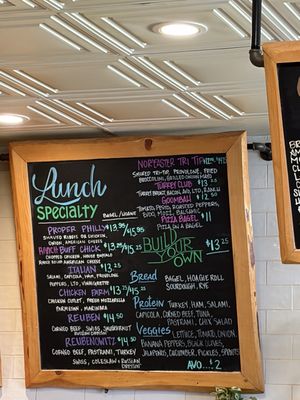 Lunch
SPECIALTY
BAGEL / HOAGIE
PROPER PHILLY $13.95/$15.95
SHAVED RIBEYE OR CHICKEN,
ONION, AMERICAN CHEESE
BUFF CHICK $13.25/$15.25
CHOPPED CHICKEN, HOUSE BUFFALO
AMERICAN CHEESE
ITALIAN $13.25
SALAMI, CAPICOLA, HAM, PROVOLONE,
PEPPERS, LTD, VINAIGRETTE
CHICKEN PARM
CHICKEN CUTLET, FRESH MOZZARELLA
PARMESAN, MARINARA
REUBEN $14.50
CORNED BEEF, SWISS, SAUERKRAUT,
RUSSIAN DRESSING
REUBENOWITZ $14.50
CORNED BEEF, PASTRAMI, TURKEY
SWISS, COLESLAW & RUSSIAN
DRESSING
NOR'EASTER TRI TIP
SMOKED TRI-TIP, PROVOLONE, FRIED
BROCCOLINI, GRILLED ONION
TURKEY CLUB $13.25
TURKEY BREAST, BACON, AGED, LTD, RANCH
GOOMBAH $12.50
TOMATO, PESTO, ROASTED PEPPERS,
EVOO, MOZZ, BALSAMIC
PIZZA BAGEL $11
PIZZA ON A BAGEL
BUILD YOUR OWN $13.25
Bread
BAGEL, HOAGIE ROLL
SOURDOUGH, RYE
Protein
TURKEY, HAM, SALAMI,
CAPICOLA, CORNED BEEF, TUNA,
PASTRAMI, CHIX SALAD
Veggies
LETTUCE, TOMATO, ONION,
BANANA PEPPERS, BLACK OLIVES,
JALAPENOS, CUCUMBER, PICKLES, SPROUTS
AVO... $2